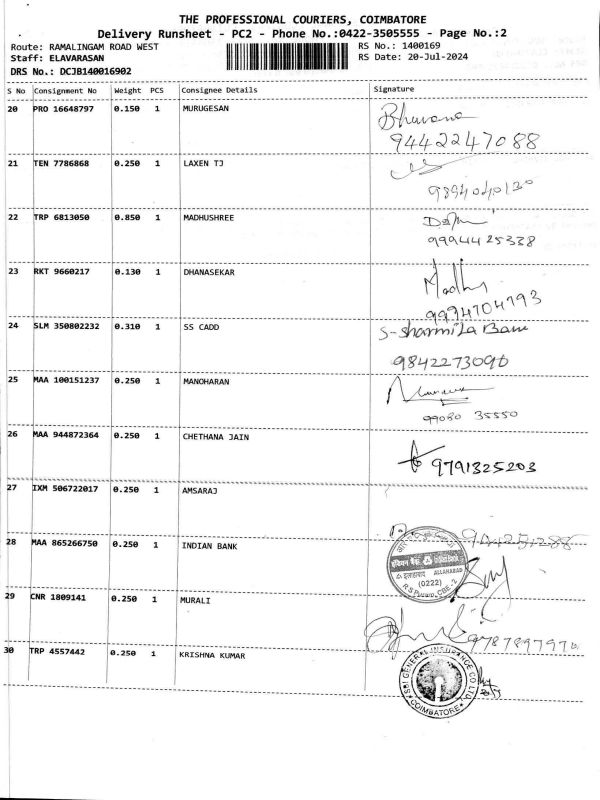 THE PROFESSIONAL COURIERS, COIMBATORE
Delivery Runsheet - PC2 - Phone No.:0422-3505555 - Page No.:2
Route: RAMALINGAM ROAD WEST RS No.: 1400169
Staff: ELAVARASAN RS Date: 20-Jul-2024
DRS No.: DCJB140016902
S No Consignment No Weight PCS Consignee Details Signature
20 PRO 16648797 0.150 1 MURUGESAN Bhuvana
9442247088
21 TEN 7786868 0.250 1 LAXEN TJ
9894040130
22 TRP 6813050 0.850 1 MADHUSHREE
9994425338
23 RKT 9660217 0.130 1 DHANASEKAR Madhu
9994704793
24 SLM 350802232 0.310 1 SS CADD S-Sharmila Banu
9842273096
25 MAA 100151237 0.250 1 MANOHARAN
99080 35550
26 MAA 944872364 0.250 1 CHETHANA JAIN
9791325203
27 IXM 506722017 0.250 1 AMSARAJ
904251288
28 MAA 865266750 0.250 1 INDIAN BANK
ALLAHABAD
(0222)
R.S.Puram, CBE-2
29 CNR 1809141 0.250 1 MURALI
978789797
30 TRP 4557442 0.250 1 KRISHNA KUMAR
SBI GENERAL INSURANCE CO LTD.
COIMBATORE